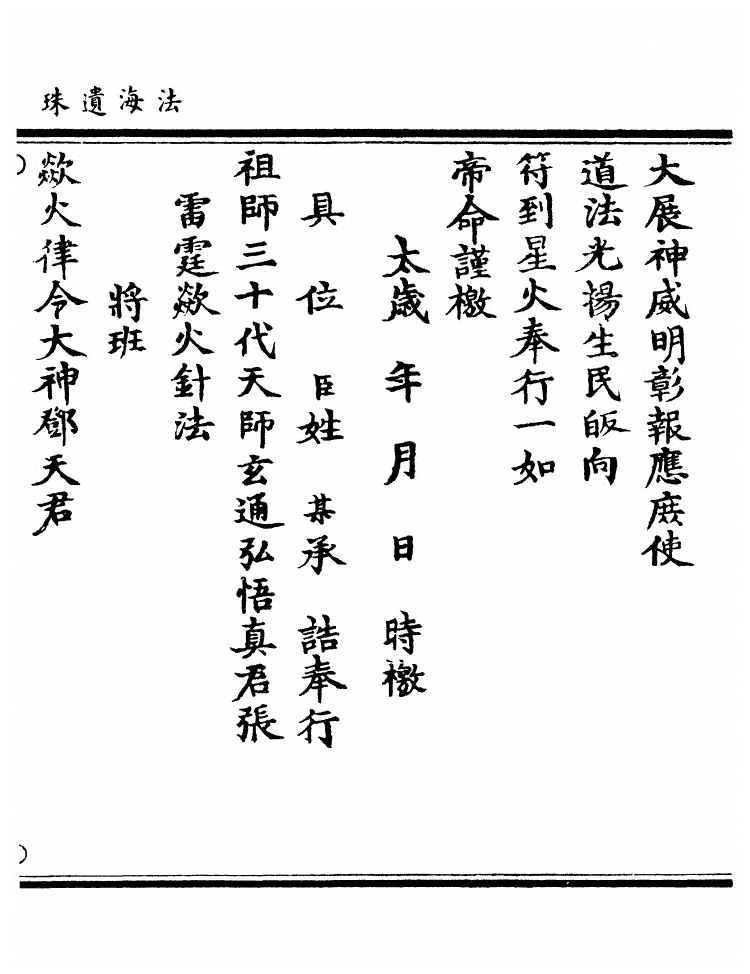 法海遺珠
大展神威明彰報應庶使
道法光揚生民皈向
符到星火奉行一如
帝命謹檄
太歲 年 月 日 時檄
具 位 臣姓 某承 誥奉行
祖師三十代天師玄通弘悟真君張
雷霆歘火針法
將班
歘火律令大神鄧天君